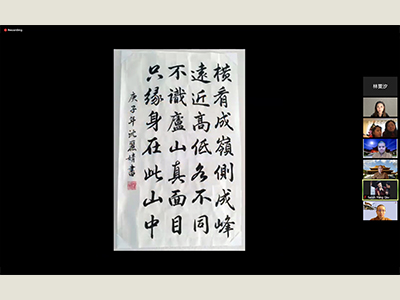 Recording
橫看成嶺側成峰
遠近高低各不同
不識廬山真面目
只緣身在此山中
庚子年 書